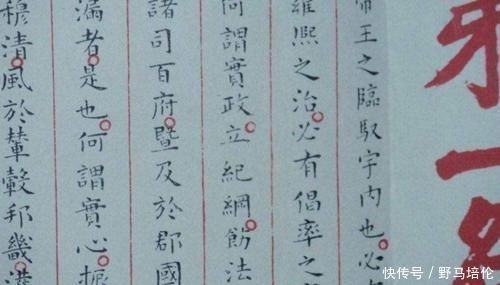 第一
帝王之臨馭宇内也必
雍熙之治必有倡率之
何謂實政立紀綱飭法
諸司百府暨及於郡國
漏者是也何謂實心振
穆清風於輦轂邦畿
快传号／野马培伦